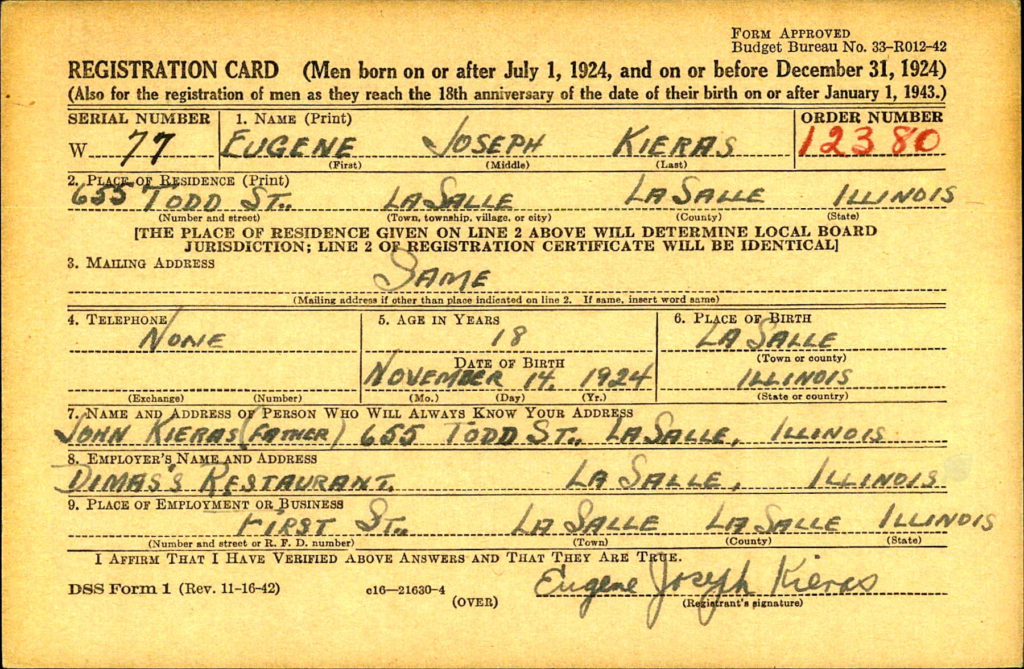 FORM APPROVED
Budget Bureau No. 33–R012-42
REGISTRATION CARD (Men born on or after July 1, 1924, and on or before December 31, 1924)
(Also for the registration of men as they reach the 18th anniversary of the date of their birth on or after January 1, 1943.)
SERIAL NUMBER 1. NAME (Print) ORDER NUMBER
W 77 EUGENE JOSEPH KIERAS 12380
(First) (Middle) (Last)
2. PLACE OF RESIDENCE (Print)
655 TODD ST., LASALLE LASALLE ILLINOIS
(Number and street) (Town, township, village, or city) (County) (State)
[THE PLACE OF RESIDENCE GIVEN ON LINE 2 ABOVE WILL DETERMINE LOCAL BOARD
JURISDICTION; LINE 2 OF REGISTRATION CERTIFICATE WILL BE IDENTICAL]
3. MAILING ADDRESS
SAME
(Mailing address if other than place indicated on line 2. If same, insert word same)
4. TELEPHONE 5. AGE IN YEARS 6. PLACE OF BIRTH
NONE 18 LASALLE
(Town or county)
DATE OF BIRTH
NOVEMBER 14, 1924 ILLINOIS
(Exchange) (Number) (Mo.) (Day) (Yr.) (State or country)
7. NAME AND ADDRESS OF PERSON WHO WILL ALWAYS KNOW YOUR ADDRESS
JOHN KIERAS (FATHER) 655 TODD ST., LASALLE, ILLINOIS
8. EMPLOYER'S NAME AND ADDRESS
DIMAS'S RESTAURANT. LASALLE, ILLINOIS
9. PLACE OF EMPLOYMENT OR BUSINESS
FIRST ST., LASALLE LASALLE ILLINOIS
(Number and street or R. F. D. number) (Town) (County) (State)
I AFFIRM THAT I HAVE VERIFIED ABOVE ANSWERS AND THAT THEY ARE TRUE.
DSS Form 1 (Rev. 11-16-42) c16—21630-4 Eugene Joseph Kieras
(OVER) (Registrant's signature)